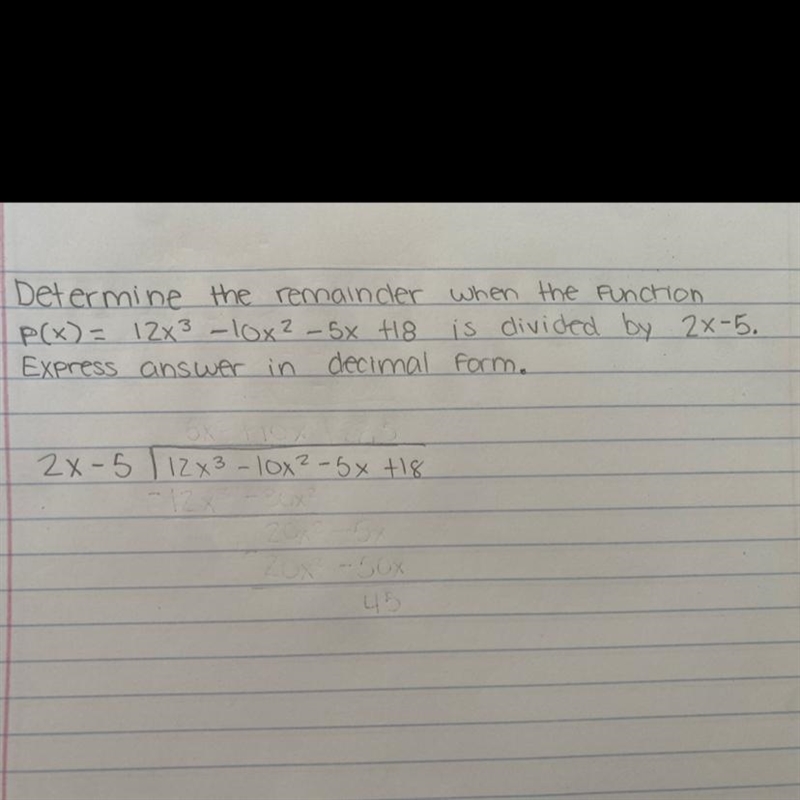 Determine the remainder when the function
p(x) = 12x³ -10x² -5x +18 is divided by 2x-5.
Express answer in decimal form.
2x-5 12x³ -10x² -5x +18
-5x
-50x
45